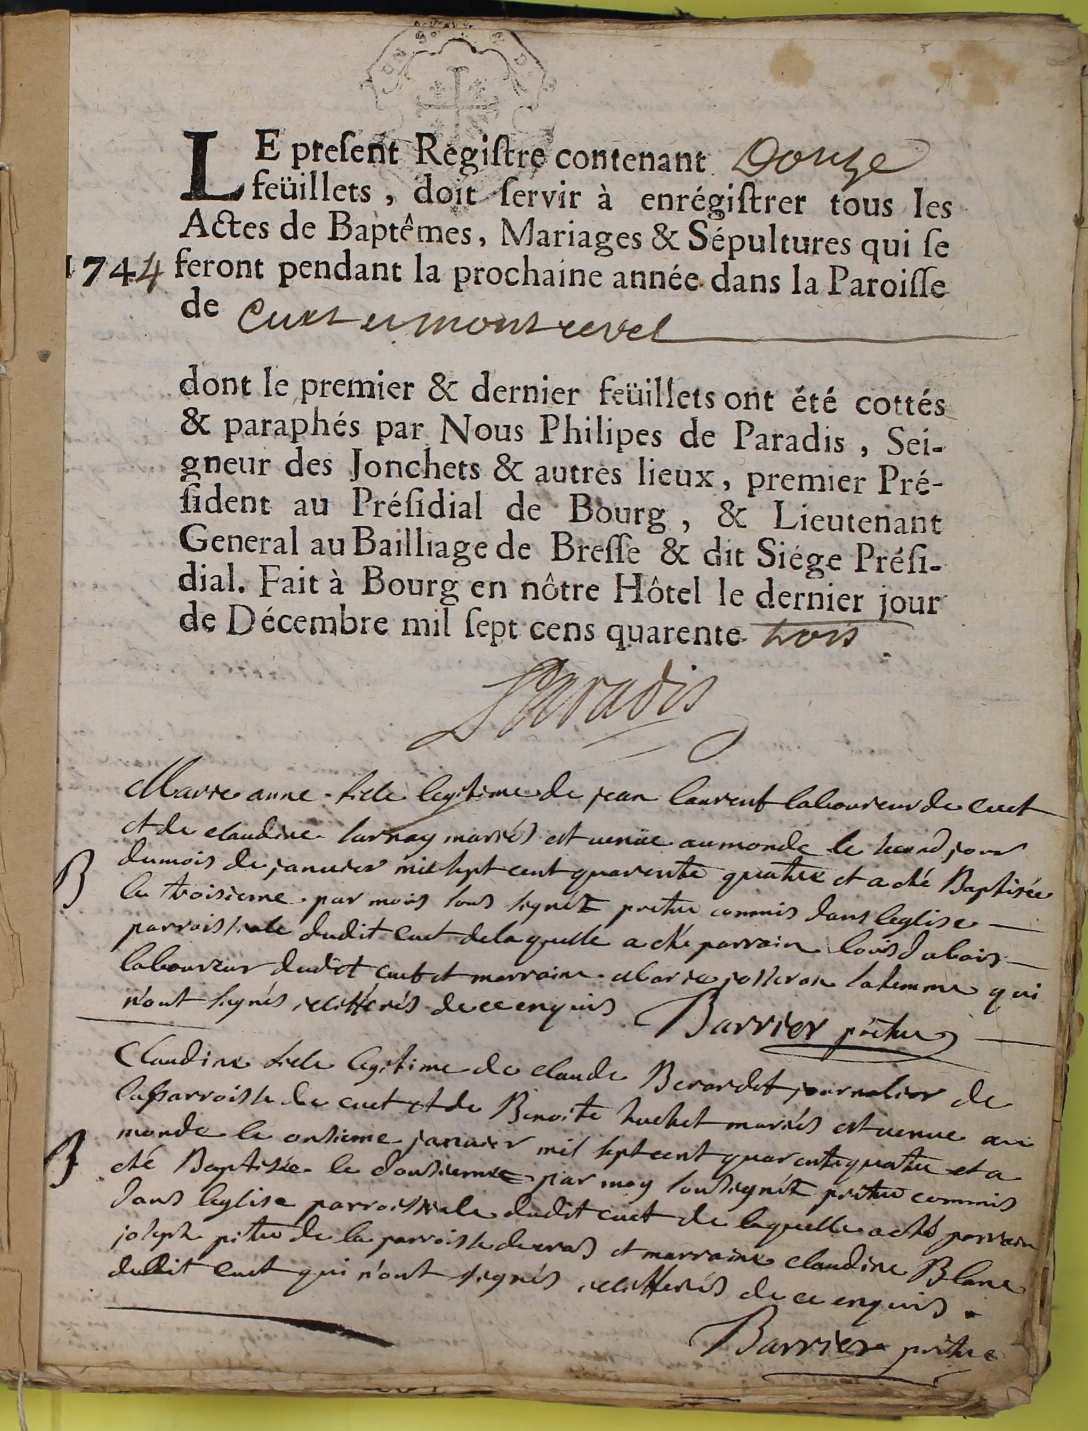 LE present Registre contenant Douze
feüillets, doit servir à enrégistrer tous les
Actes de Baptêmes, Mariages & Sépultures qui se
1744 feront pendant la prochaine année dans la Paroisse
de Cuet et montrevel
dont le premier & dernier feüillets ont été cottés
& paraphés par Nous Philipes de Paradis, Sei-
gneur des Jonchets & autres lieux, premier Pré-
sident au Présidial de Bourg, & Lieutenant
General au Bailliage de Bresse & dit Siége Prési-
dial. Fait à Bourg en nôtre Hôtel le dernier jour
de Décembre mil sept cens quarente trois.
Paradis
Marie anne fille legitime de jean laurent laboureur de cuet
et de claudine mariés est venüe au monde le second jour
B du mois de janvier mil sept cent quarente quatre et a eté Baptisée
le troisieme par mois sous signé pretre commis dans leglise
parroissiale dudit cuet de laquelle a eté parrain louis dubois
laboureur dudit cuet et marraine Marie sa femme qui
n'ont signés illitterés de ce enquis Barrier prêtre
Claudine fille legitime de claude Berardet journalier de
la parroisse de cuet et de Benoite huchet mariés est venue au
B monde le onsieme janvier mil sept cent quarente quatre et a
eté Baptisée le dousieme par moy soussigné pretre commis
dans leglise parroissiale dudit cuet de laquelle a eté parrain
joseph pitre de la parroisse de cras et marraine claudine Blanc
dudit cuet qui n'ont signés illitterés de ce enquis.
Barrier prêtre